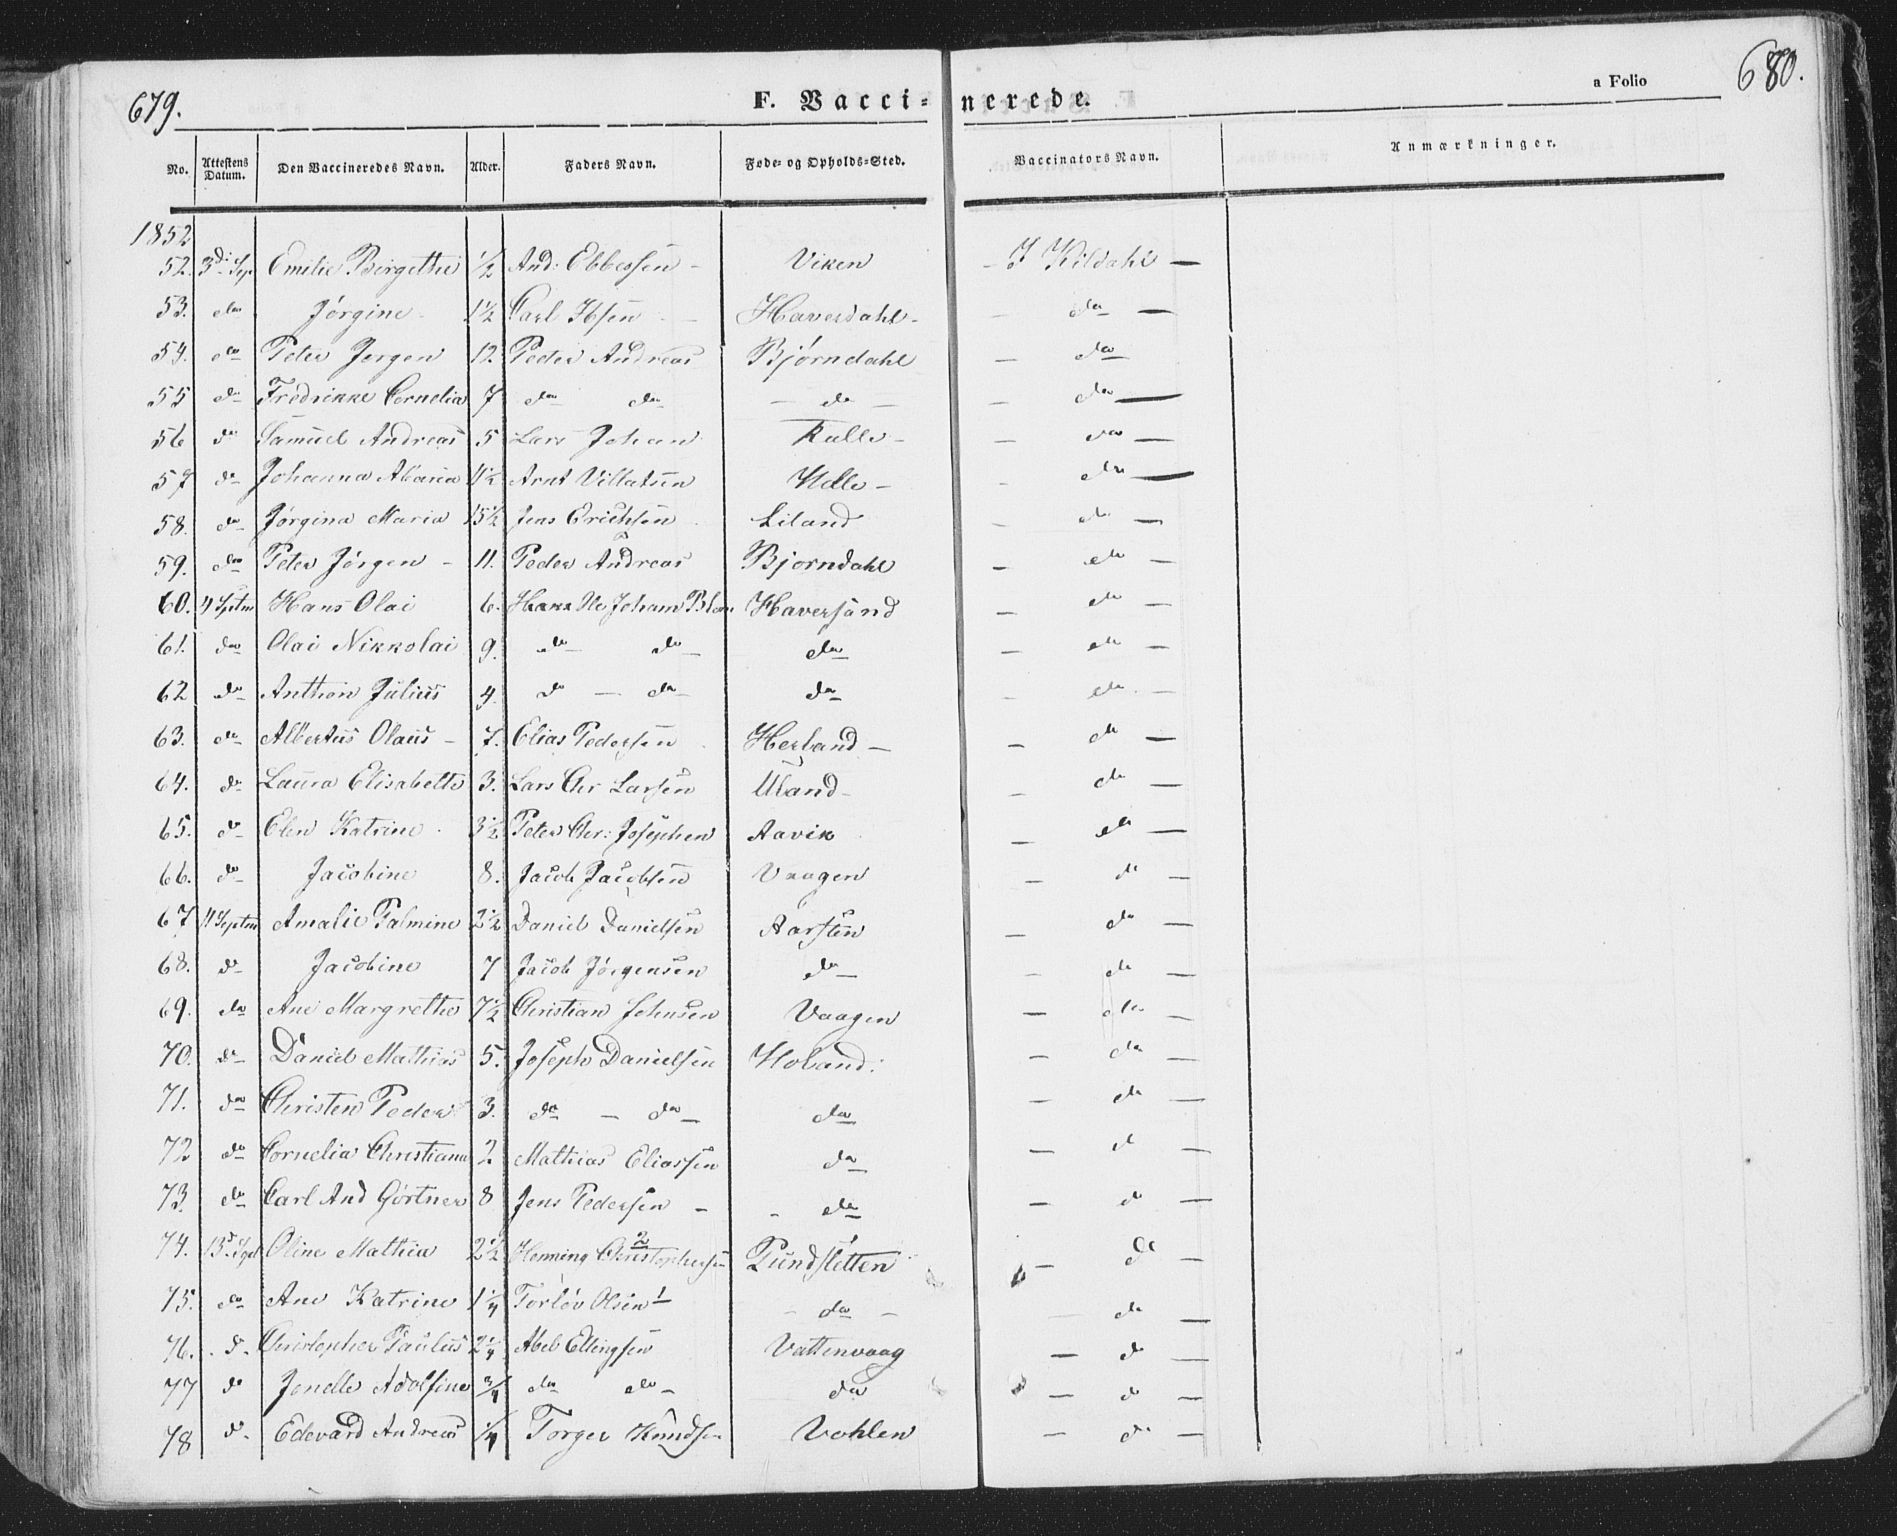 679.
F. Vacci-nerede.
a Folio
680.
No. Attestens Datum. Den Vaccineredes Navn. Alder. Faders Navn. Føde- og Opholds-Sted. Vaccinators Navn. Anmærkninger.
1852
52. 3di Sep Emilie Birgethe 1/2 And: Ebbessen - Viken - J Kildahl -
53. do Jørgine 1 1/2 Carl Ibsen - Haversdahl - - do -
54. do Peter Jørgen 12. Peder Andreas Bjørndahl - do
55 do Fredrikke Cornelia 7 do do - do - - do -
56 do Samuel Andreas 5 Lars Johan Kalle - - do -
57 do Johanna 1 1/2 Arnt - - do -
58. do Jørgina Maria 15 1/2 Jens Erichsen Liland - do -
59. do Peter Jörgen - 11. Peder Andreas Bjorndahl - do -
60. 4 Septm Hans Olai 6. Johan Haversund - do -
61. do Olai Nikkolai 9. do do do - do -
62 do Anthon Julius 4. do - do do - do -
63. do Albertus Olaus - 7. Elias Pedersen Herland - - do -
64. do Laura Elisabeth 3. Lars Chr Larsen Uland - - do -
65. do Elen Katrine 3 1/2 Peter Chr: Josephen Aavik - do -
66. do Jacobine 8. Jacob Jacobsen Vaagen - do -
67 11 Septm Amalie Palmine 2 1/2 Daniel Danielsen Aarsten - do -
68. do Jacobine 7 Jacob Jörgensen do - do -
69. do Ane Margrethe 7 1/2 Christian Johnsen Vaagen - do -
70. do Daniel Mathias 5. Joseph Danielsen Holand: - do -
71. do Christen Peder 3. do - do - do - do -
72 do Cornelia Christiana 2 Mathias Eliassen do - do -
73. do Carl And Görtner 8 Jens Pedersen - - do - do -
74. 13d Sept Oline Mathia 2 1/2 Henning Christophersen 2 Pundsletten - do -
75. do Ane Katrine 1 1/4 Torlöv Olsen 1 - do - - do -
76. do Christopher Paulus 2 1/4 Abel Ellingsen Vattenvaag - do -
77 do Jenelle Adolfine 3/4 do do - do - do -
78 do Edevard Andreas 1/4 Torger Knudsen Vohlen - do -